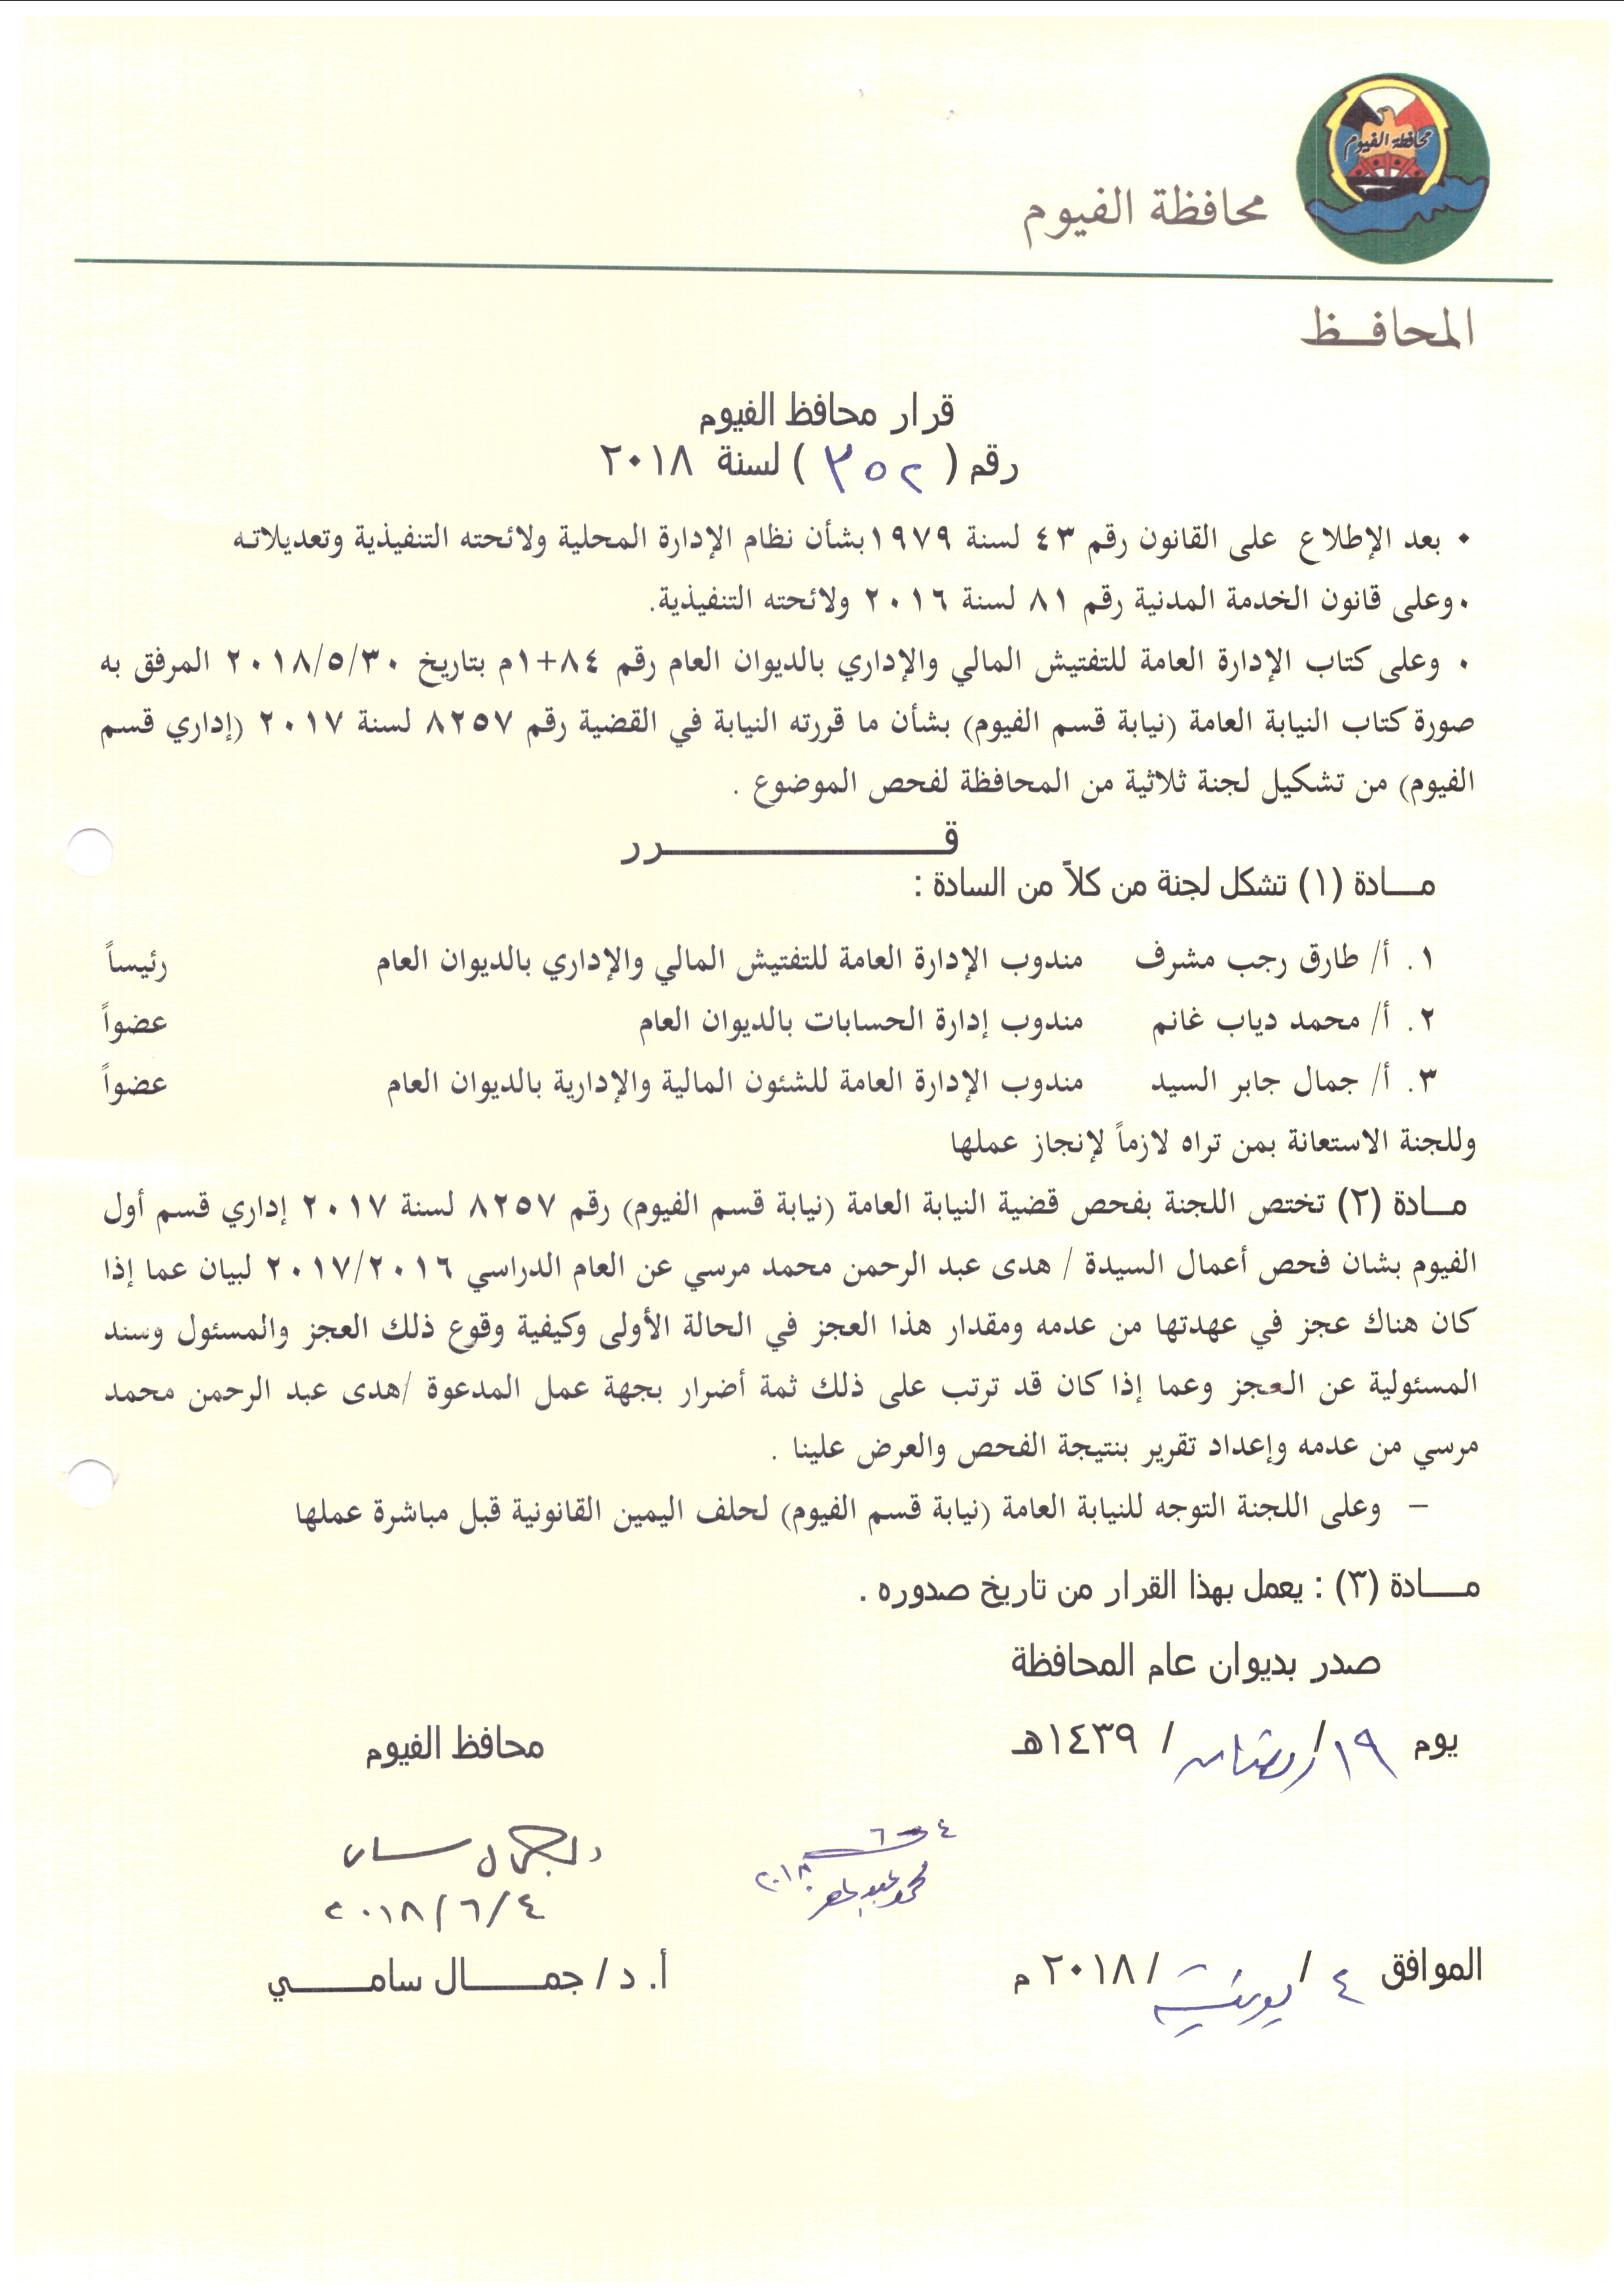 محافظة الفيوم
محافظة الفيوم
المحافـــظ
قرار محافظ الفيوم
رقم ( ٣٥٢ ) لسنة ٢٠١٨
• بعد الإطلاع على القانون رقم ٤٣ لسنة ١٩٧٩بشأن نظام الإدارة المحلية ولائحته التنفيذية وتعديلاته
• وعلى قانون الخدمة المدنية رقم ٨١ لسنة ٢٠١٦ ولائحته التنفيذية.
• وعلى كتاب الإدارة العامة للتفتيش المالي والإداري بالديوان العام رقم ٨٤+١م بتاريخ ٢٠١٨/٥/٣٠ المرفق به
صورة كتاب النيابة العامة (نيابة قسم الفيوم) بشأن ما قررته النيابة في القضية رقم ٨٢٥٧ لسنة ٢٠١٧ (إداري قسم
الفيوم) من تشكيل لجنة ثلاثية من المحافظة لفحص الموضوع .
قـــــــــــــــــرر
مـــادة (١) تشكل لجنة من كلاً من السادة :
١. أ/ طارق رجب مشرف مندوب الإدارة العامة للتفتيش المالي والإداري بالديوان العام رئيساً
٢. أ/ محمد دياب غانم مندوب إدارة الحسابات بالديوان العام عضواً
٣. أ/ جمال جابر السيد مندوب الإدارة العامة للشئون المالية والإدارية بالديوان العام عضواً
وللجنة الاستعانة بمن تراه لازماً لإنجاز عملها
مـــادة (٢) تختص اللجنة بفحص قضية النيابة العامة (نيابة قسم الفيوم) رقم ٨٢٥٧ لسنة ٢٠١٧ إداري قسم أول
الفيوم بشان فحص أعمال السيدة / هدى عبد الرحمن محمد مرسي عن العام الدراسي ٢٠١٧/٢٠١٦ لبيان عما إذا
كان هناك عجز في عهدتها من عدمه ومقدار هذا العجز في الحالة الأولى وكيفية وقوع ذلك العجز والمسئول وسند
المسئولية عن العجز وعما إذا كان قد ترتب على ذلك ثمة أضرار بجهة عمل المدعوة /هدى عبد الرحمن محمد
مرسي من عدمه وإعداد تقرير بنتيجة الفحص والعرض علينا .
– وعلى اللجنة التوجه للنيابة العامة (نيابة قسم الفيوم) لحلف اليمين القانونية قبل مباشرة عملها
مـــادة (٣) : يعمل بهذا القرار من تاريخ صدوره .
صدر بديوان عام المحافظة
يوم ١٩ / رمضان / ١٤٣٩هـ
محافظ الفيوم
٢٠١٨/٦/٤
الموافق ٤ / يونية / ٢٠١٨ م
أ. د/ جمـــــال سامـــــي